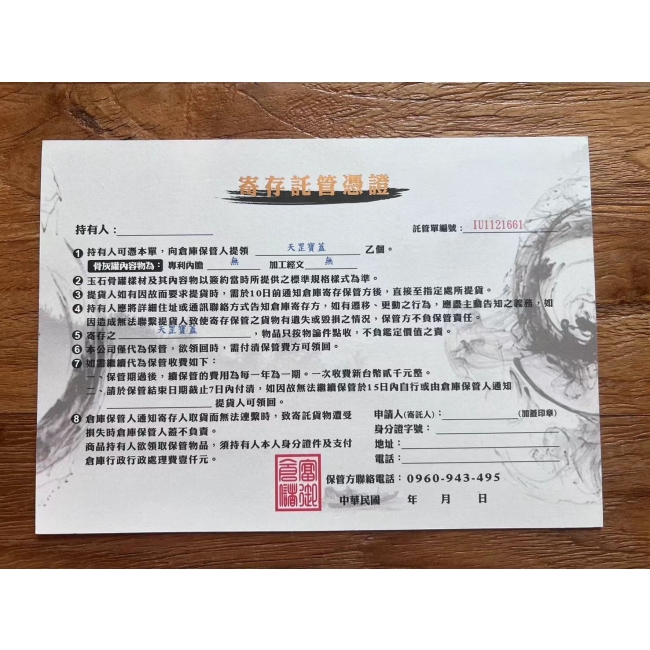 寄存託管憑證
持有人：
託管單編號：IU1121661
1 持有人可憑本單，向倉庫保管人提領 天罡寶蓋 乙個。
骨灰罐內容物為： 專利內膽 無 加工經文 無
2 玉石骨罐樣材及其內容物以簽約當時所提供之標準規格樣式為準。
3 提貨人如有因故而要求提貨時，需於10日前通知倉庫寄存保管方後，直接至指定處所提貨。
4 持有人應將詳細住址或通訊聯絡方式告知倉庫寄存方，如有遷移、更動之行為，應盡主動告知之義務，如
因造成無法聯繫提貨人致使寄存保管之貨物有遺失或毀損之情況，保管方不負保管責任。
5 寄存之 天罡寶蓋 ，物品只按物論件點收，不負鑑定價值之責。
6 本公司僅代為保管，欲領回時，需付清保管費方可領回。
7 如需繼續代為保管收費如下：
一、保管期過後，續保管的費用為每一年為一期。一次收費新台幣貳千元整。
二、請於保管結束日期截止7日內付清，如因故無法繼續保管於15日內自行或由倉庫保管人通知
提貨人可領回。
8 倉庫保管人通知寄存人取貨而無法連繫時，致寄託貨物遭受
損失時倉庫保管人蓋不負責。
商品持有人欲領取保管物品，須持有人本人身分證件及支付
倉庫行政行政處理費壹仟元。
申請人(寄託人)： (加蓋印章)
身分證字號：
地址：
電話：
保管方聯絡電話：0960-943-495
中華民國 年 月 日